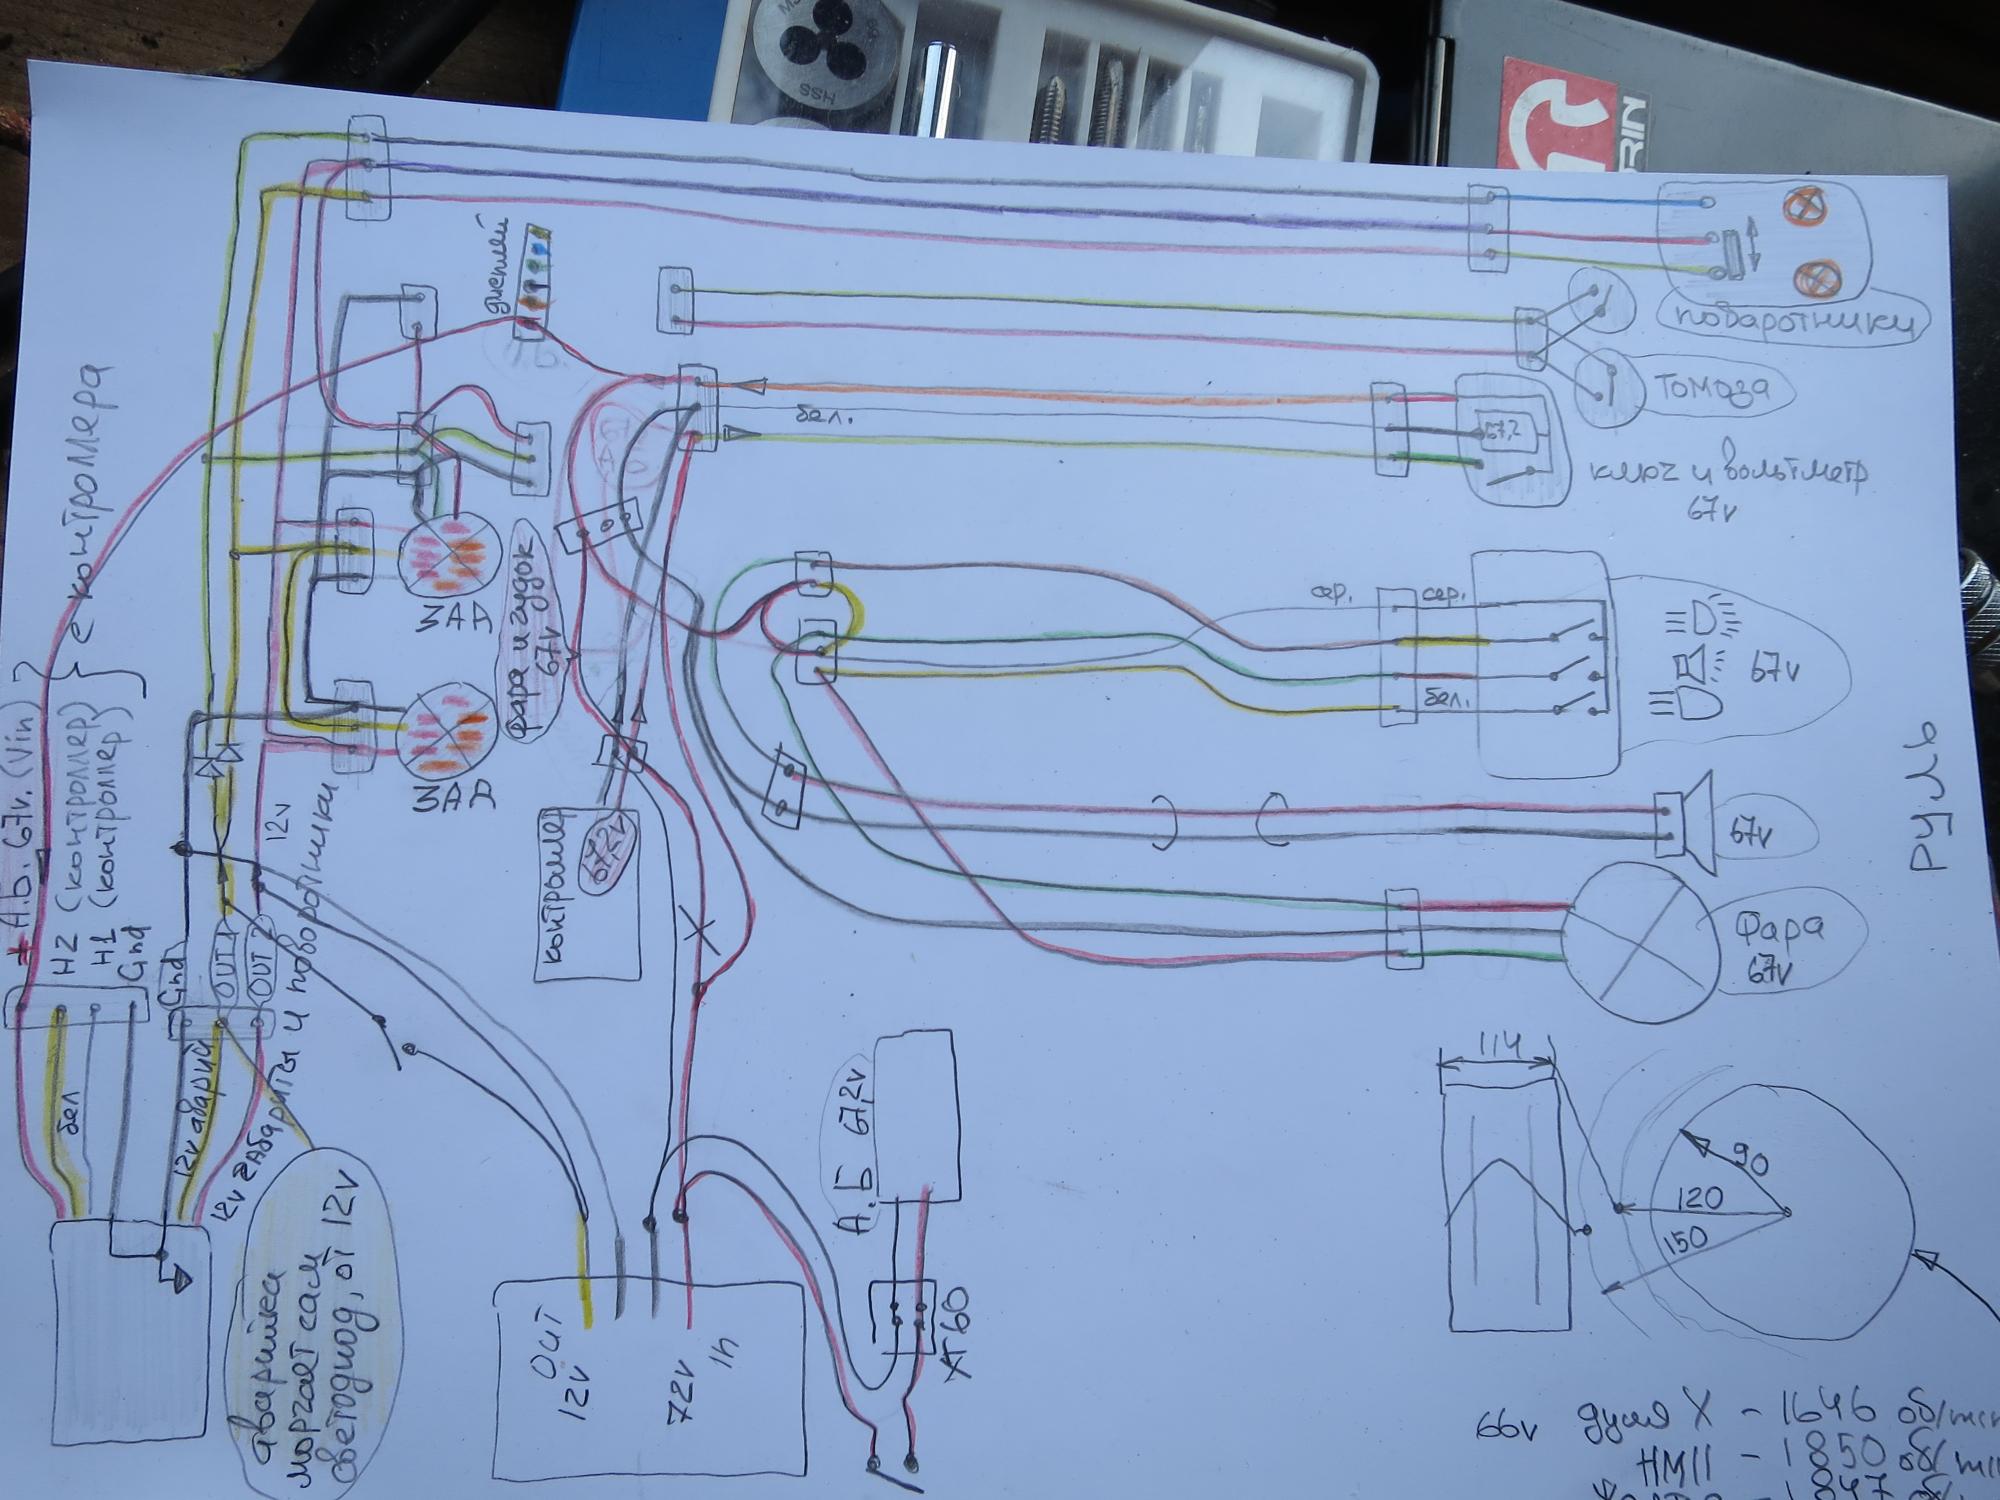 HSS
RIN
дисплей
поваротники
томаза
бел.
67,2
ключ и вольтметр
67v
с контроллера
ЗАД
ЗАД
фара и гудок
67v
сер.
сер.
бел.
67v
РУЛЬ
+ А.Б. 67v. (Vin)
H2 (контроллер)
H1 (контроллер)
Gnd
Gnd
OUT 1
OUT 2
12v
12v габариты и поворотники
12v аварий
бел
контроллер
67,2v
67v
Фара
67v
А.Б 67,2v
XT60
OUT
12v
72v
In
аварийка
моргает сам
светодиод, от 12v
114
90
120
150
66v дуля X - 1646 об/min
НМ11 - 1850 об/mi